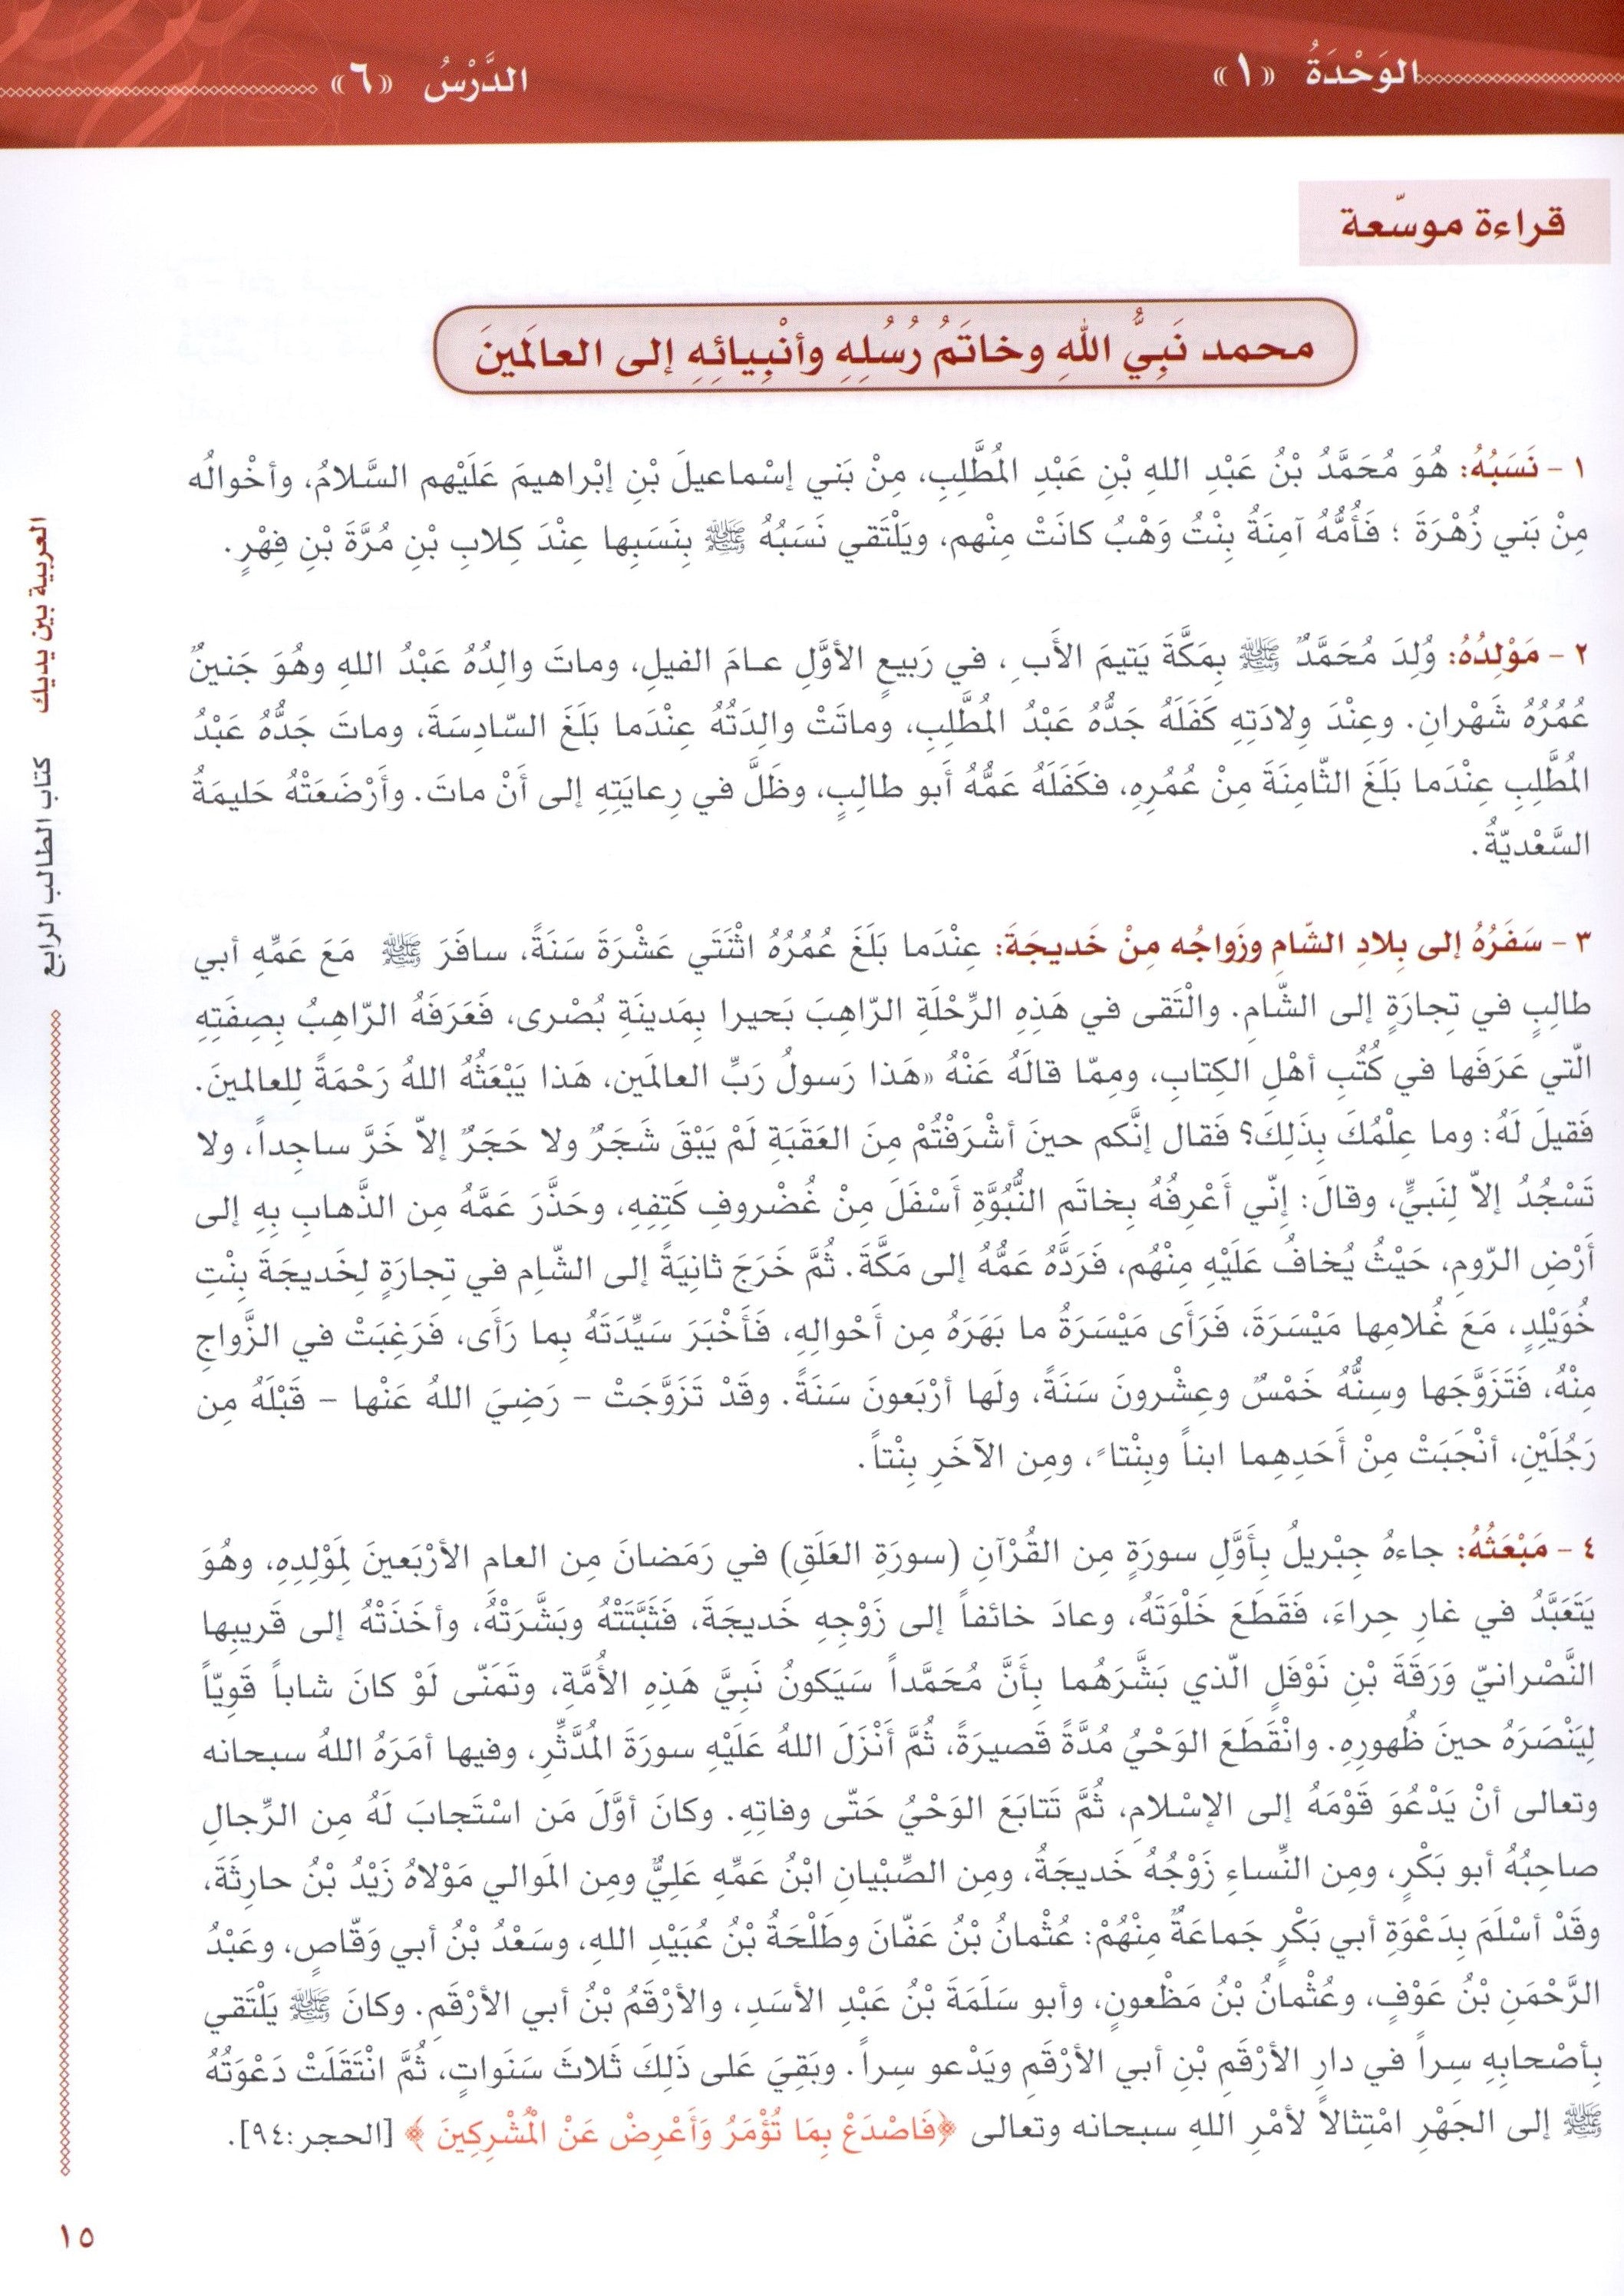 الوَحْدَةُ «١»
الدَّرْسُ «٦»
قراءة موسّعة
محمد نَبِيُّ اللهِ وخاتَمُ رُسُلِهِ وأنْبِيائِهِ إلى العالَمينَ
١ - نَسَبُهُ: هُوَ مُحَمَّدُ بْنُ عَبْدِ اللهِ بْنِ عَبْدِ المُطَّلِبِ، مِنْ بَني إسْماعيلَ بْنِ إبْراهيمَ عَلَيْهم السَّلامُ، وأخْوالُه
مِنْ بَني زُهْرَةَ ؛ فَأُمُّهُ آمِنَةُ بِنْتُ وَهْبُ كانَتْ مِنْهم، ويَلْتَقي نَسَبُهُ ﷺ بِنَسَبِها عِنْدَ كِلابِ بْنِ مُرَّةَ بْنِ فِهْرٍ.
٢ - مَوْلِدُهُ: وُلِدَ مُحَمَّدٌ ﷺ بِمَكَّةَ يَتيمَ الأَبِ، في رَبيعٍ الأوَّلِ عامَ الفيلِ، وماتَ والِدُهُ عَبْدُ اللهِ وهُوَ جَنينٌ
عُمُرُهُ شَهْرانِ. وعِنْدَ وِلادَتِهِ كَفَلَهُ جَدُّهُ عَبْدُ المُطَّلِبِ، وماتَتْ والِدَتُهُ عِنْدَما بَلَغَ السّادِسَةَ، وماتَ جَدُّهُ عَبْدُ
المُطَّلِبِ عِنْدَما بَلَغَ الثّامِنَةَ مِنْ عُمُرِهِ، فكَفَلَهُ عَمُّهُ أَبو طالِبٍ، وظَلَّ في رِعايَتِهِ إلى أَنْ ماتَ. وأَرْضَعَتْهُ حَليمَةُ
السَّعْديّةُ.
٣ - سَفَرُهُ إلى بِلادِ الشّامِ وزَواجُه مِنْ خَديجَةَ: عِنْدَما بَلَغَ عُمُرُهُ اثْنَتَي عَشْرَةَ سَنَةً، سافَرَ ﷺ مَعَ عَمِّهِ أبي
طالِبٍ في تِجارَةٍ إلى الشّامِ. والْتَقى في هَذِهِ الرِّحْلَةِ الرّاهِبَ بَحيرا بِمَدينَةِ بُصْرى، فَعَرَفَهُ الرّاهِبُ بِصِفَتِهِ
الّتي عَرَفَها في كُتُبِ أهْلِ الكِتابِ، ومِمّا قالَهُ عَنْهُ «هَذا رَسولُ رَبِّ العالَمَين، هَذا يَبْعَثُهُ اللهُ رَحْمَةً لِلعالمينَ.
فَقيلَ لَهُ: وما عِلْمُكَ بِذَلِكَ؟ فَقال إنَّكم حينَ أشْرَفْتُمْ مِنَ العَقَبَةِ لَمْ يَبْقَ شَجَرٌ ولا حَجَرٌ إلاّ خَرَّ ساجِداً، ولا
تَسْجُدُ إلاّ لِنَبيٍّ، وقالَ: إنّي أَعْرِفُهُ بِخاتَم النُّبُوَّةِ أَسْفَلَ مِنْ غُضْروفِ كَتِفِهِ، وحَذَّرَ عَمَّهُ مِن الذَّهابِ بِهِ إلى
أَرْضِ الرّومِ، حَيْثُ يُخافُ عَلَيْهِ مِنْهُم، فَرَدَّهُ عَمُّهُ إلى مَكَّةَ. ثُمَّ خَرَجَ ثانِيَةً إلى الشّامِ في تِجارَةٍ لِخَديجَةَ بِنْتِ
خُوَيْلِدٍ، مَعَ غُلامِها مَيْسَرَةَ، فَرَأَى مَيْسَرَةُ ما بَهَرَهُ مِن أَحْوالِهِ، فَأَخْبَرَ سَيِّدَتَهُ بِما رَأَى، فَرَغِبَتْ في الزَّواجِ
مِنْهُ، فَتَزَوَّجَها وسِنُّهُ خَمْسٌ وعِشْرونَ سَنَةً، ولَها أرْبَعونَ سَنَةً. وقَدْ تَزَوَّجَتْ - رَضِيَ اللهُ عَنْها - قَبْلَهُ مِن
رَجُلَيْنِ، أنْجَبَتْ مِنْ أَحَدِهِما ابناً وبِنْتاً، ومِن الآخَرِ بِنْتاً.
٤ - مَبْعَثُهُ: جاءهُ جِبْريلُ بِأَوَّلِ سورَةٍ مِن القُرْآنِ (سورَةِ العَلَقِ) في رَمَضانَ مِن العام الأرْبَعينَ لِمَوْلِدِهِ، وهُوَ
يَتَعَبَّدُ في غارِ حِراءَ، فَقَطَعَ خَلْوَتَهُ، وعادَ خائفاً إلى زَوْجِهِ خَديجَةَ، فَثَبَّتَتْهُ وبَشَّرَتْهُ، وأخَذَتْهُ إلى قَريبِها
النَّصْرانيّ وَرَقَةَ بْنِ نَوْفَلٍ الّذي بَشَّرَهُما بِأَنَّ مُحَمَّداً سَيَكونُ نَبِيَّ هَذِهِ الأُمَّةِ، وتَمَنّى لَوْ كانَ شاباً قَوِيّاً
لِيَنْصَرَهُ حينَ ظُهورِهِ. وانْقَطَعَ الوَحْيُ مُدَّةً قَصيرَةً، ثُمَّ أَنْزَلَ اللهُ عَلَيْهِ سورَةَ المُدَّثِّرِ، وفيها أمَرَهُ اللهُ سبحانه
وتعالى أنْ يَدْعُوَ قَوْمَهُ إلى الإسْلامِ، ثُمَّ تَتابَعَ الوَحْيُ حَتّى وفاتِهِ. وكانَ أوَّلَ مَن اسْتَجابَ لَهُ مِن الرِّجالِ
صاحِبُهُ أبو بَكْرٍ، ومِن النِّساءِ زَوْجُهُ خَديجَةُ، ومِن الصِّبْيانِ ابْنُ عَمِّهِ عَلِيٌّ ومِن المَوالي مَوْلاهُ زَيْدُ بْنُ حارِثَةَ،
وقَدْ أسْلَمَ بِدَعْوَةِ أبي بَكْرٍ جَماعَةٌ مِنْهُمْ: عُثْمانُ بْنُ عَفّانَ وطَلْحَةُ بْنُ عُبَيْدِ اللهِ، وسَعْدُ بْنُ أبي وَقّاصٍ، وعَبْدُ
الرَّحْمَنِ بْنُ عَوْفٍ، وعُثْمانُ بْنُ مَظْعونٍ، وأبو سَلَمَةَ بْنُ عَبْدِ الأسَدِ، والأرْقَمُ بْنُ أبي الأرْقَمِ. وكانَ ﷺ يَلْتَقي
بِأصْحابِهِ سِراً في دارِ الأرْقَمِ بْنِ أبي الأرْقَمِ ويَدْعو سِراً. وبَقِيَ عَلى ذَلِكَ ثَلاثَ سَنَواتٍ، ثُمَّ انْتَقَلَتْ دَعْوَتُهُ
ﷺ إلى الجَهْرِ امْتِثالاً لأمْرِ اللهِ سبحانه وتعالى ﴿فَاصْدَعْ بِمَا تُؤْمَرُ وَأَعْرِضْ عَنْ الْمُشْرِكِينَ﴾ [الحجر:٩٤].
العربية بين يديك كتاب الطالب الرابع
١٥